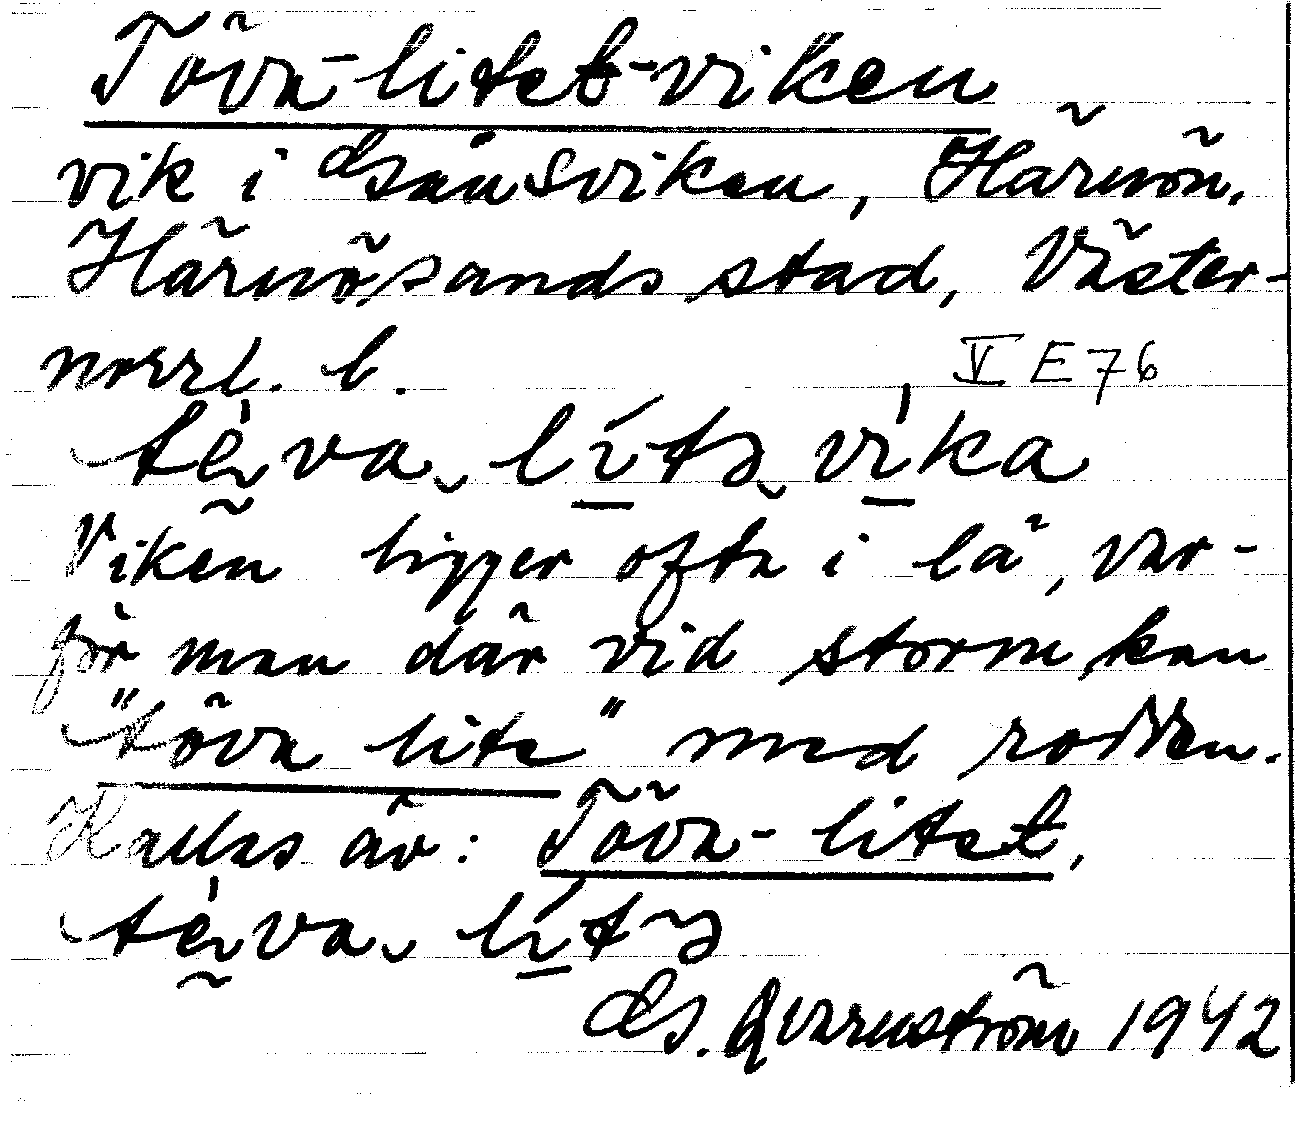 Töva-litet-viken
vik i Gånsviken, Härnön,
Härnösands stad, Väster-
norrl. b.
V E 76
Viken ligger ofta i lä, var-
för man där vid storm kan
"töva lite" med rodden.
Kallas äv: Töva-litet,
G. Qvarnström 1942